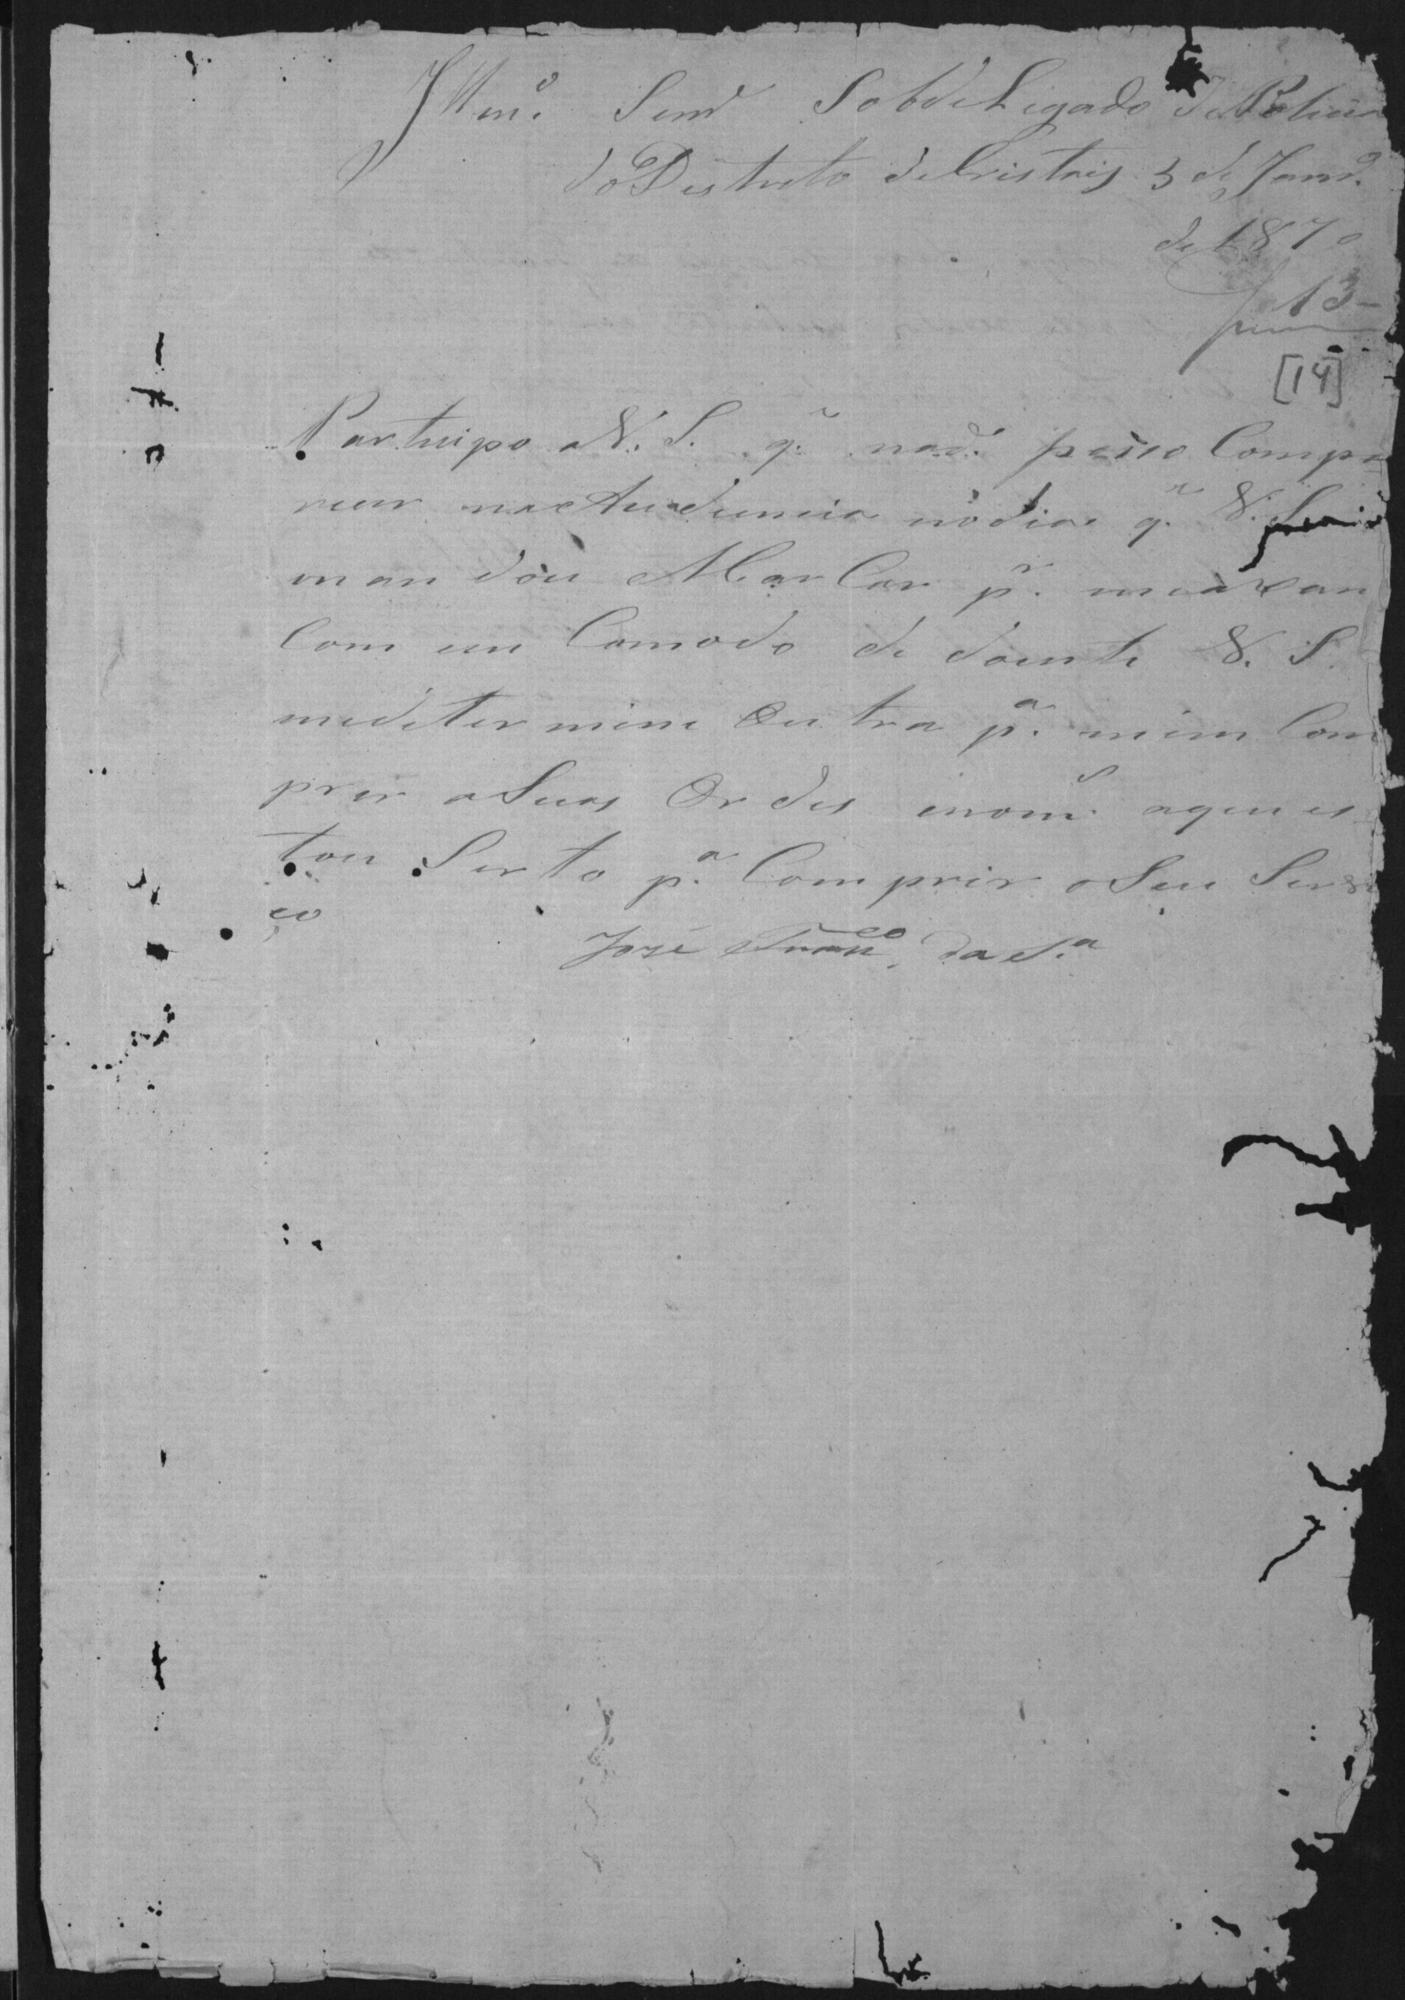 Illmº. Senr Sobdeligado de Policia
do Destrito de Cristais 3 de Janrº.
de 1870
13
[14]
Partucipo a V. S. q̃. nad. posso Compa
recer na Audiencia no dia q̃. V. S.
mandou Marcar pr. me axar
Com en Comodo de doente V. S.
mediter mine Outra pª. mim Com
prir a Suas Ordes
tou Serto pª. Comprir o Seu Servi
ço
José Francco. da Sª